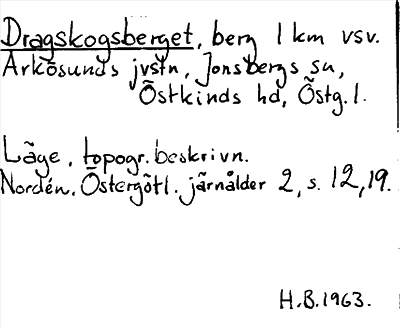 Dragskogsberget, berg 1 km vsv.
Arkösunds jvstn, Jonsbergs sn,
Östkinds hd, Östg. l.
Läge, topogr. beskrivn.
Nordén, Östergötl. järnålder 2, s. 12, 19.
H.B. 1963.